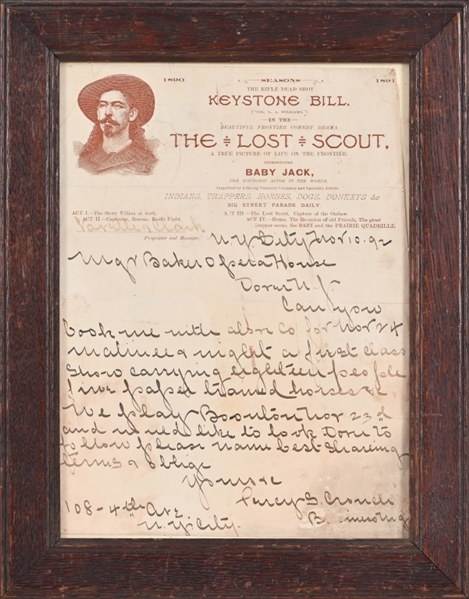 1890 SEASONS 1891
THE RIFLE DEAD SHOT
KEYSTONE BILL.
IN THE
BEAUTIFUL FRONTIER COMEDY DRAMA
THE LOST SCOUT,
A TRUE PICTURE OF LIFE ON THE FRONTIER.
INTRODUCING
BABY JACK,
THE YOUNGEST ACTOR IN THE WORLD.
Supported by a Strong Dramatic Company and Specialty Artists.
INDIANS, TRAPPERS, HORSES, DOGS, DONKEYS &c
BIG STREET PARADE DAILY
ACT I.—The Story Villain at work.
ACT II.—Captured, Rescue, Knife Fight.
ACT III.—The Lost Scout, Capture of the Outlaw.
ACT IV.—Home, The Reunion of old Friends, The great
supper scene, the BABY and the PRAIRIE QUADRILLE.
Proprietor and Manager.
N.Y. City Nov 10. 92
Mgr Baker Opera House
Dover N.J.
Can you
book me with above Co for Nov 24
matinee & night a first class
show carrying eighteen people
fine paper trained horses &c
We play Boonton Nov 23d
and would like to book Dover to
follow please name best sharing
terms & oblige
Yours &c
108-4th Ave Percy G.
N.Y. City.